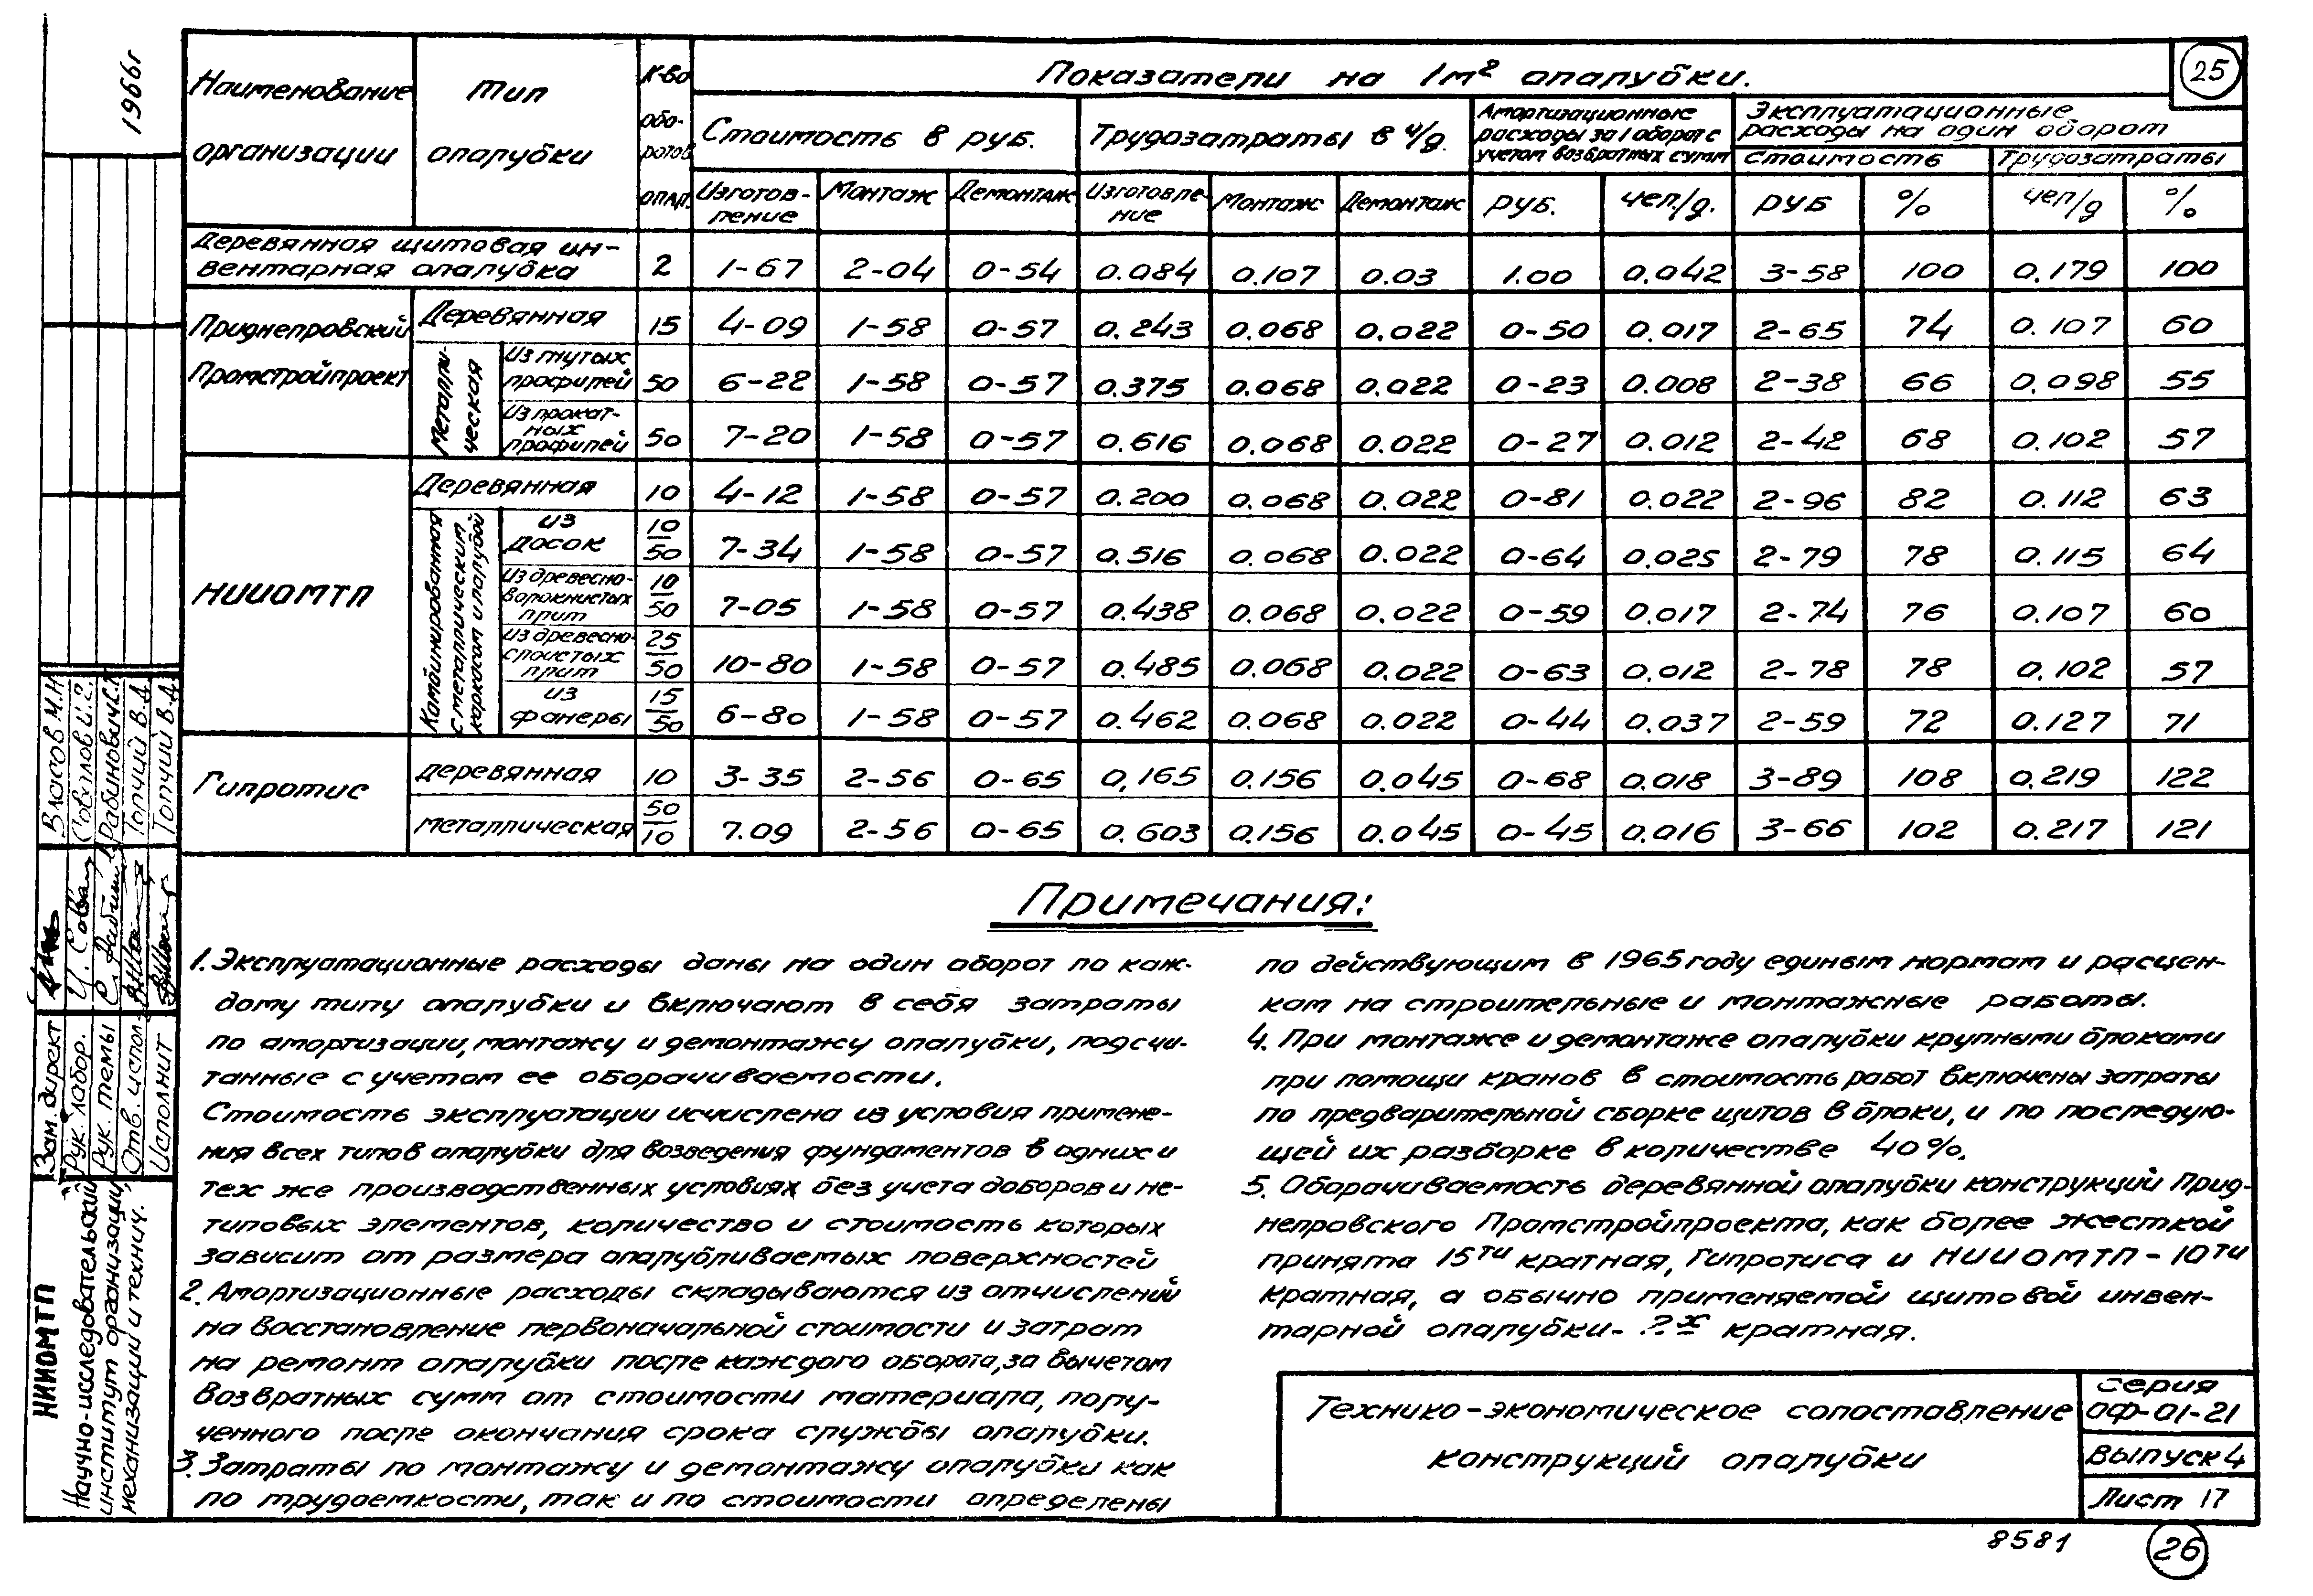 25
1966г
Наименование организации
Тип опалубки
К-во оборотов опал.
Показатели на 1м² опалубки.
Стоимость в руб.
Трудозатраты в ч/д.
Амортизационные
расходы за 1 оборот с
учетом возвратных сумм
Эксплуатационные
расходы на один оборот
Стоимость
Трудозатраты
Изготов-
ление
Монтаж
Демонтаж
Изготовле-
ние
Монтаж
Демонтаж
руб.
чел./д.
руб
%
чел/д
%
Деревянная щитовая ин-
вентарная опалубка 2 1-67 2-04 0-54 0.084 0.107 0.03 1.00 0.042 3-58 100 0.179 100
Приднепровский
Промстройпроект
Деревянная 15 4-09 1-58 0-57 0.243 0.068 0.022 0-50 0.017 2-65 74 0.107 60
Металли-
ческая
Из гнутых
профилей 50 6-22 1-58 0-57 0.375 0.068 0.022 0-23 0.008 2-38 66 0.098 55
Из прокат-
ных
профилей 50 7-20 1-58 0-57 0.616 0.068 0.022 0-27 0.012 2-42 68 0.102 57
НИИОМТП
Деревянная 10 4-12 1-58 0-57 0.200 0.068 0.022 0-81 0.022 2-96 82 0.112 63
Комбинированная
с металлическим
каркасом и палубой
из
досок 10/50 7-34 1-58 0-57 0.516 0.068 0.022 0-64 0.025 2-79 78 0.115 64
Из древесно-
волокнистых
плит 10/50 7-05 1-58 0-57 0.438 0.068 0.022 0-59 0.017 2-74 76 0.107 60
Из древесно-
слоистых
плит 25/50 10-80 1-58 0-57 0.485 0.068 0.022 0-63 0.012 2-78 78 0.102 57
из
фанеры 15/50 6-80 1-58 0-57 0.462 0.068 0.022 0-44 0.037 2-59 72 0.127 71
Гипротис
деревянная 10 3-35 2-56 0-65 0,165 0.156 0.045 0-68 0.018 3-89 108 0.219 122
металлическая 50/10 7.09 2-56 0-65 0.603 0.156 0.045 0-45 0.016 3-66 102 0.217 121
Примечания:
1. Эксплуатационные расходы даны на один оборот по каж-
дому типу опалубки и включают в себя затраты
по амортизации, монтажу и демонтажу опалубки, подсчи-
танные с учетом ее оборачиваемости.
Стоимость эксплуатации исчислена из условия примене-
ния всех типов опалубки для возведения фундаментов в одних и
тех же производственных условиях без учета доборов и не-
типовых элементов, количество и стоимость которых
зависит от размера опалубливаемых поверхностей
2. Амортизационные расходы складываются из отчислений
на восстановление первоначальной стоимости и затрат
на ремонт опалубки после каждого оборота, за вычетом
возвратных сумм от стоимости материала, полу-
ченного после окончания срока службы опалубки.
3. Затраты по монтажу и демонтажу опалубки как
по трудоемкости, так и по стоимости определены
по действующим в 1965 году единым нормам и расцен-
кам на строительные и монтажные работы.
4. При монтаже и демонтаже опалубки крупными блоками
при помощи кранов в стоимость работ включены затраты
по предварительной сборке щитов в блоки, и по последую-
щей их разборке в количестве 40%.
5. Оборачиваемость деревянной опалубки конструкций Прид-
непровского Промстройпроекта, как более жесткой
принята 15ти кратная, Гипротиса и НИИОМТП - 10ти
кратная, а обычно применяемой щитовой инвен-
тарной опалубки - 2х кратная.
Технико-экономическое сопоставление
конструкций опалубки
серия
ОФ-01-21
выпуск 4
Лист 17
8581
26
Зам. директ Власов М.Н.
Рук. лабор.
Рук. темы Рабинович С.
Отв. испол. Топчий В.Д.
Исполнит Топчий В.Д.
НИИОМТП
Научно-исследовательский
институт организации,
механизации и технич.